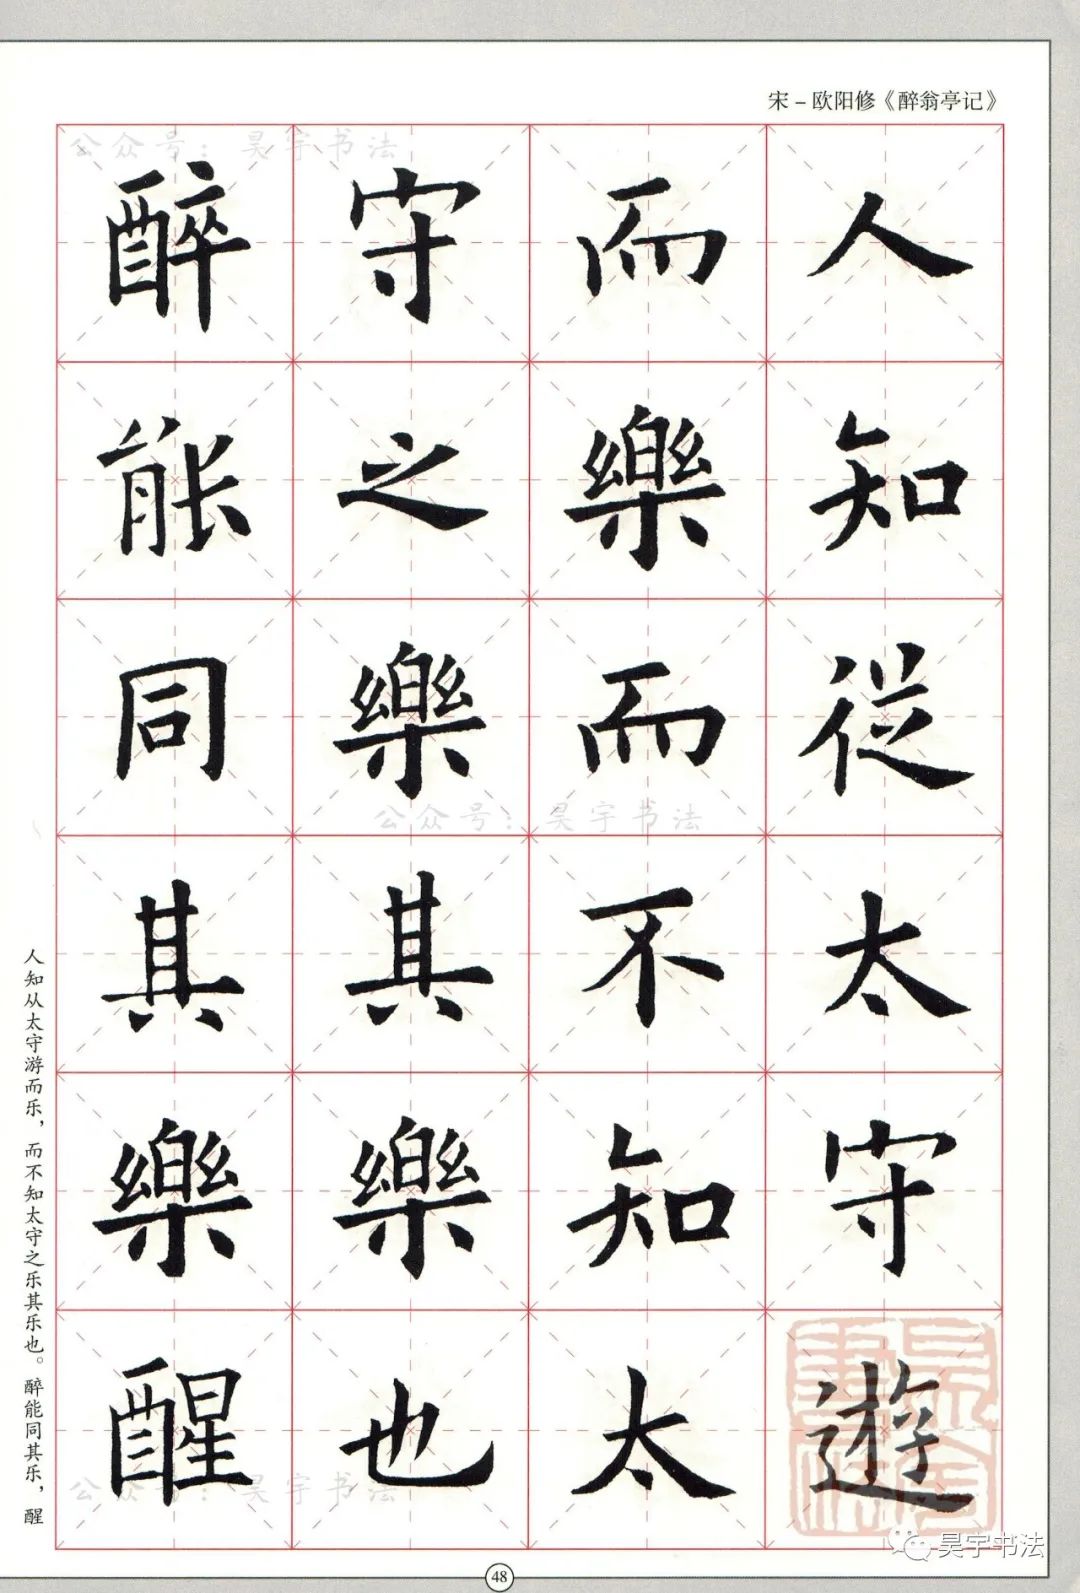 宋－欧阳修《醉翁亭记》
公众号：昊宇书法
人知從太守遊
而樂而不知太
守之樂其樂也
醉能同其樂醒
公众号：昊宇书法
公众号：昊宇书法
人知从太守游而乐，而不知太守之乐其乐也。醉能同其乐，醒
昊宇书法
48